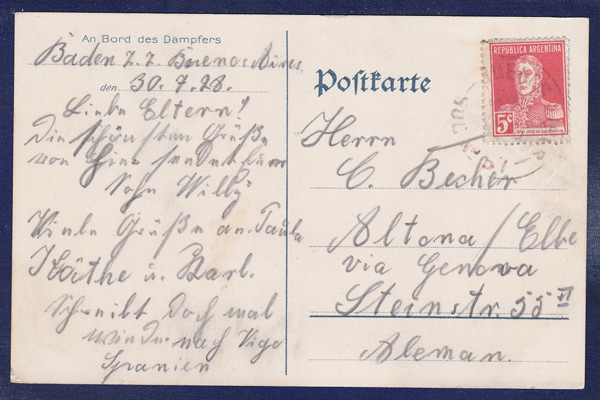 An Bord des Dampfers
Baden z. Z. Buenos Aires
den 30.7.28.
Liebe Eltern!
Die schönsten Grüße
von hier sendet euer
Sohn Willy
Viele Grüße an Paula
Käthe u. Barb.
Schreibt doch mal
wieder nach Vigo
Spanien
REPUBLICA ARGENTINA
5c
Postkarte
Herrn
C. Becher
Altona/Elbe
via Genova
Steinstr. 55 II
Aleman.